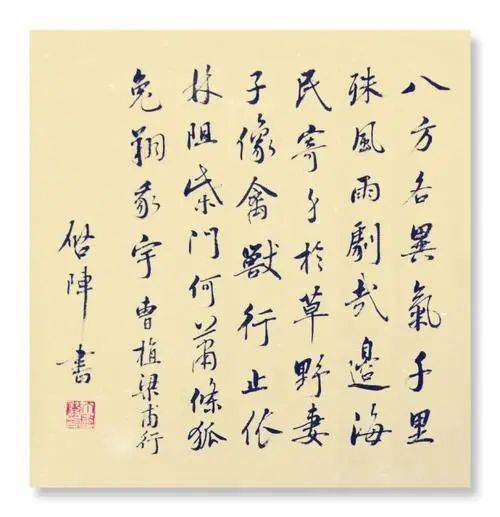 八方各異氣千里
殊風雨劇哉邊海
民寄身於草野妻
子像禽獸行止依
林阻柴門何蕭條狐
兔翔我宇曹植梁甫行
啟陣書